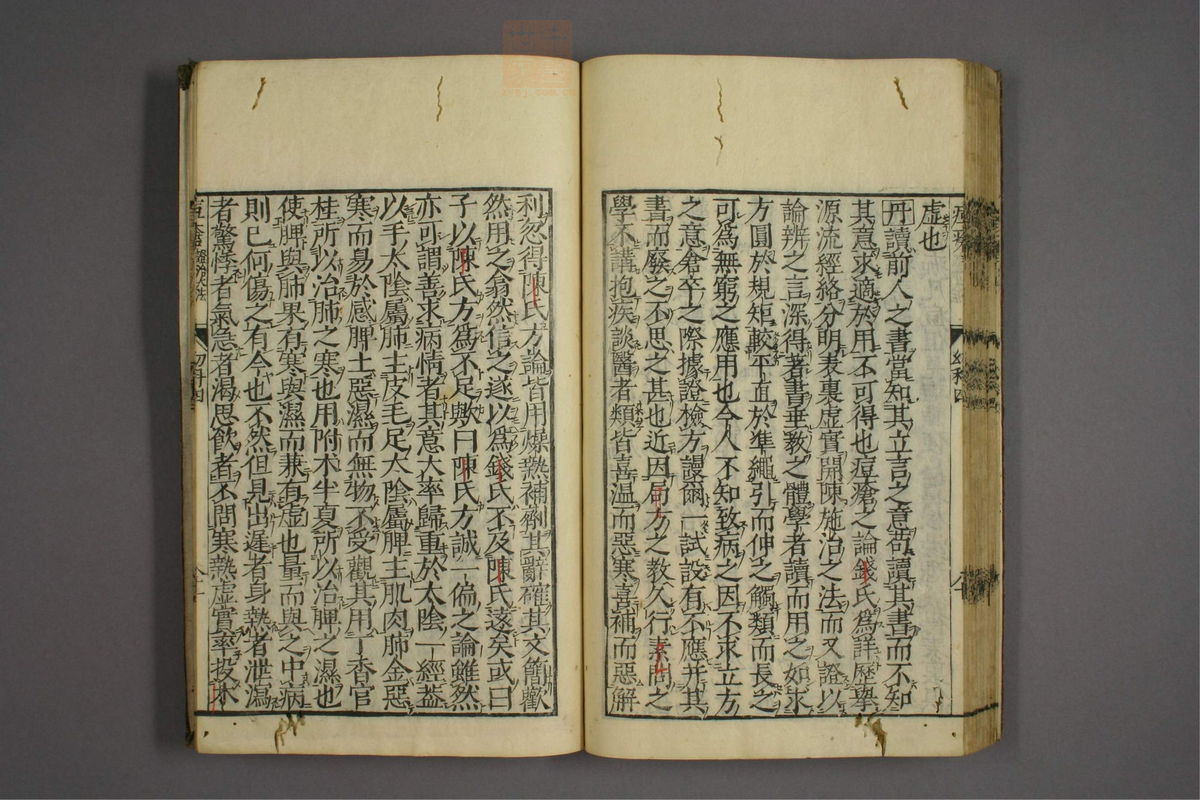 虛也
丹讀前人之書當知其立言之意苟讀其書而不知
其意求適於用不可得也痘瘡之論錢氏爲詳歷擧
源流經絡分明表裏虛實開陳施治之法而又證以
論辨之言深得著書垂敎之體學者讀而用之如求
方圓於規矩較平直於準繩引而伸之觸類而長之
可爲無窮之應用也今人不知致病之因不求立方
之意倉卒之際據證檢方謾爾一試設有不應幷其
書而廢之不思之甚也近因局方之敎久行素問之
學不講抱疾談醫者類皆喜温而惡寒喜補而惡解
利忽得陳氏方論皆用燥熱補劑其辭確其文簡歡
然用之翕然信之遂以爲錢氏不及陳氏遠矣或曰
子以陳氏方爲不足歟曰陳氏方誠一偏之論雖然
亦可謂善求病情者其意大率歸重於太陰一經蓋
以手太陰屬肺主皮毛足太陰屬脾主肌肉肺金惡
寒而易於感脾土惡濕而無物不受觀其用丁香官
桂所以治肺之寒也用附木半夏所以治脾之濕也
使脾與肺果有寒與濕而兼有虛也量而與之中病
則已何傷之有今也不然但見出遲者身熱者泄瀉
者驚悸者氣急者渴思飲者不問寒熱虛實率投木
幼科四